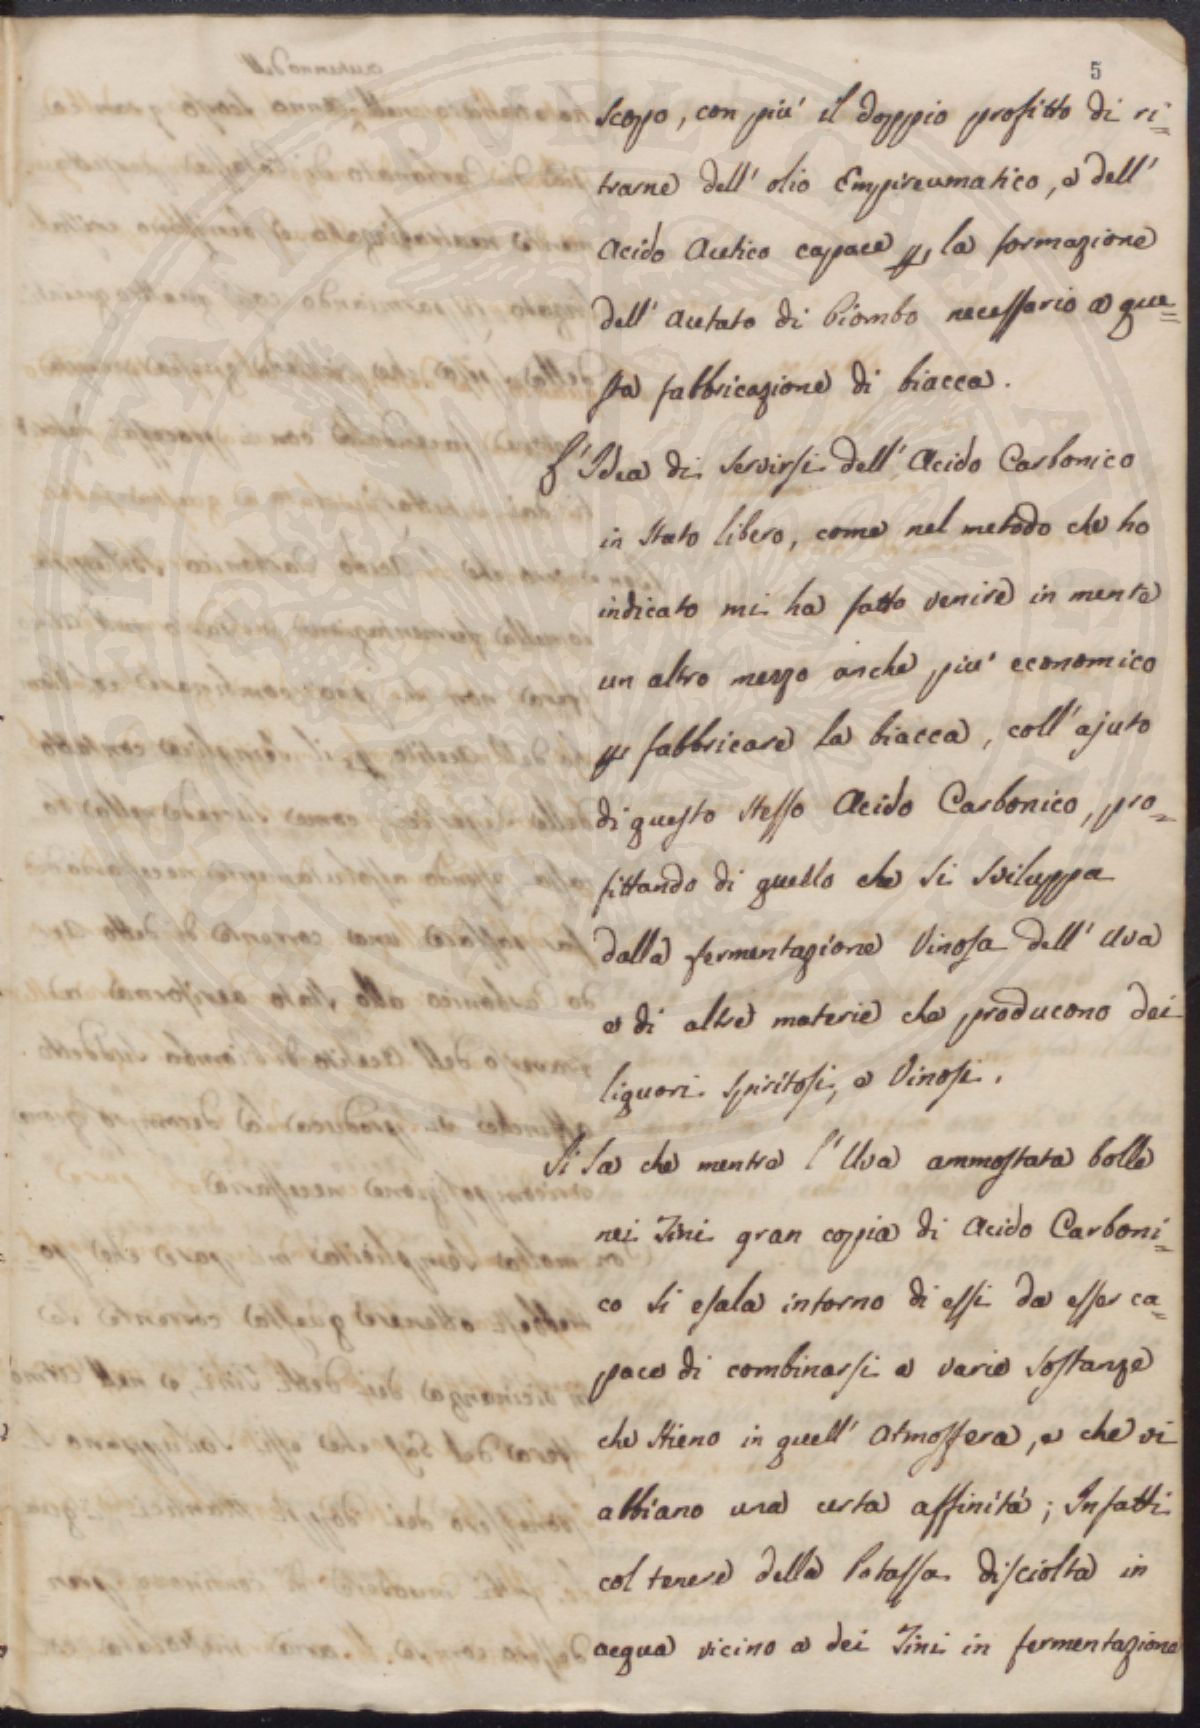 5
scopo, con piu' il doppio profitto di ri=
trarne dell' olio Empireumatico, e dell'
Acido Acetico capace per la formazione
dell' Acetato di Piombo necessario a que=
sta fabbricazione di biacca.
L'Idea di servirsi dell' Acido Carbonico
in stato libero, come nel metodo che ho
indicato mi ha fatto venire in mente
un altro mezzo anche piu' economico
per fabbricare la biacca, coll' ajuto
di questo stesso Acido Carbonico, pro=
fittando di quello che si sviluppa
dalla fermentazione Vinosa dell' Uva
e di altre materie che producono dei
liquori spiritosi, e Vinosi.
Si sa che mentre l'Uva ammostata bolle
nei Tini gran coppia di Acido Carboni=
co si esala intorno di essi da esser ca=
pace di combinarsi a varie sostanze
che stieno in quell' Atmosfera, e che vi
abbiano una certa affinità; Infatti
col tenere della Potassa disciolta in
acqua vicino a dei Tini in fermentazione